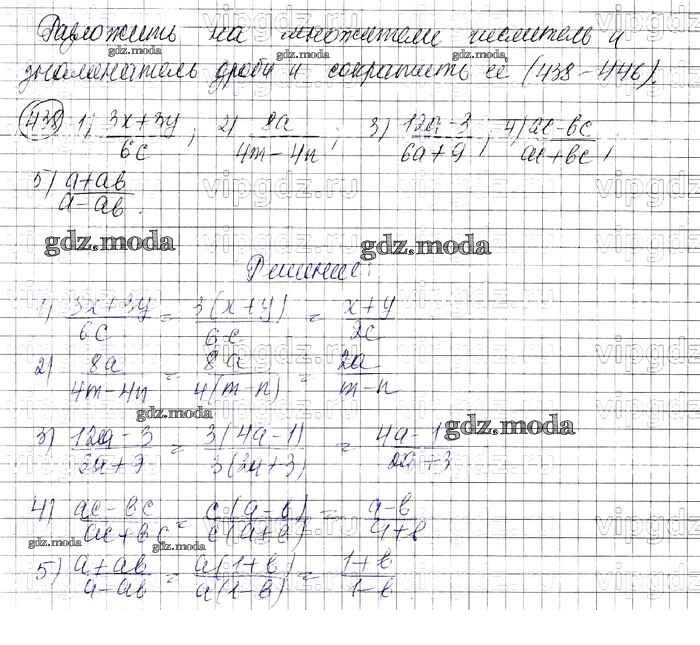 Разложить на множители числитель и
знаменатель дроби и сократить её (438-446).
438 1) 3x+3y/6c ; 2) 8a/4m-4n ; 3) 12a-3/6a+9 ; 4) ac-bc/ac+bc ;
5) a+ab/a-ab .
Решение:
1) 3x+3y/6c = 3(x+y)/6c = x+y/2c
2) 8a/4m-4n = 8a/4(m-n) = 2a/m-n
3) 12a-3/6a+9 = 3(4a-1)/3(2a+3) = 4a-1/2a+3
4) ac-bc/ac+bc = c(a-b)/c(a+b) = a-b/a+b
5) a+ab/a-ab = a(1+b)/a(1-b) = 1+b/1-b
gdz.moda
vipgdz.ru